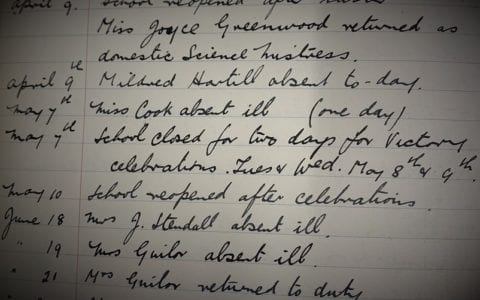 april 9. School reopened after
Miss Joyce Greenwood returned as
domestic Science Mistress.
april 9th Mildred Hartill absent to-day.
May 7th Miss Cook absent ill (one day)
May 7th School closed for two days for Victory
celebrations. Tues & Wed. May 8th & 9th.
May 10 School reopened after celebrations.
June 18 Mrs J. Stendall absent ill.
" 19 Mrs Guilor absent ill.
" 21 Mrs Guilor returned to duty